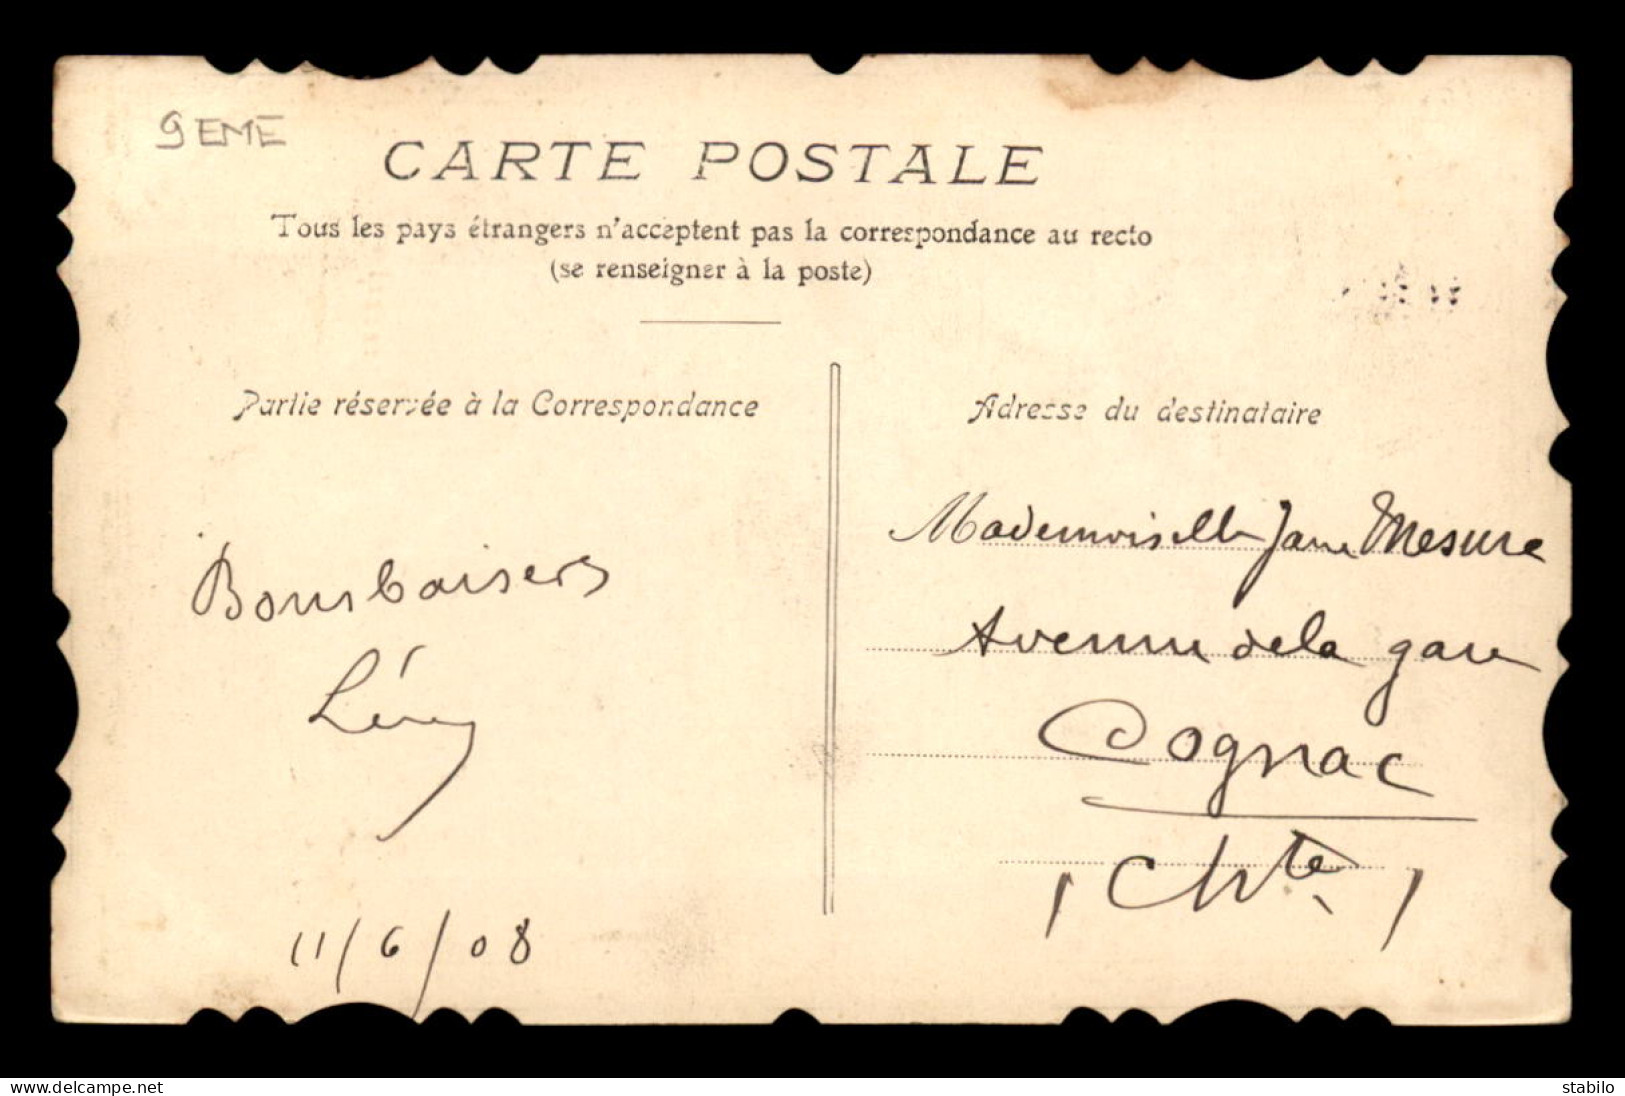 9 EME
CARTE POSTALE
Tous les pays étrangers n'acceptent pas la correspondance au recto
(se renseigner à la poste)
Partie réservée à la Correspondance
Bons baisers
11/6/08
Adresse du destinataire
Mademoiselle Jane Mesure
Avenue de la gare
Cognac
(Chte)
www.delcampe.net
stabilo